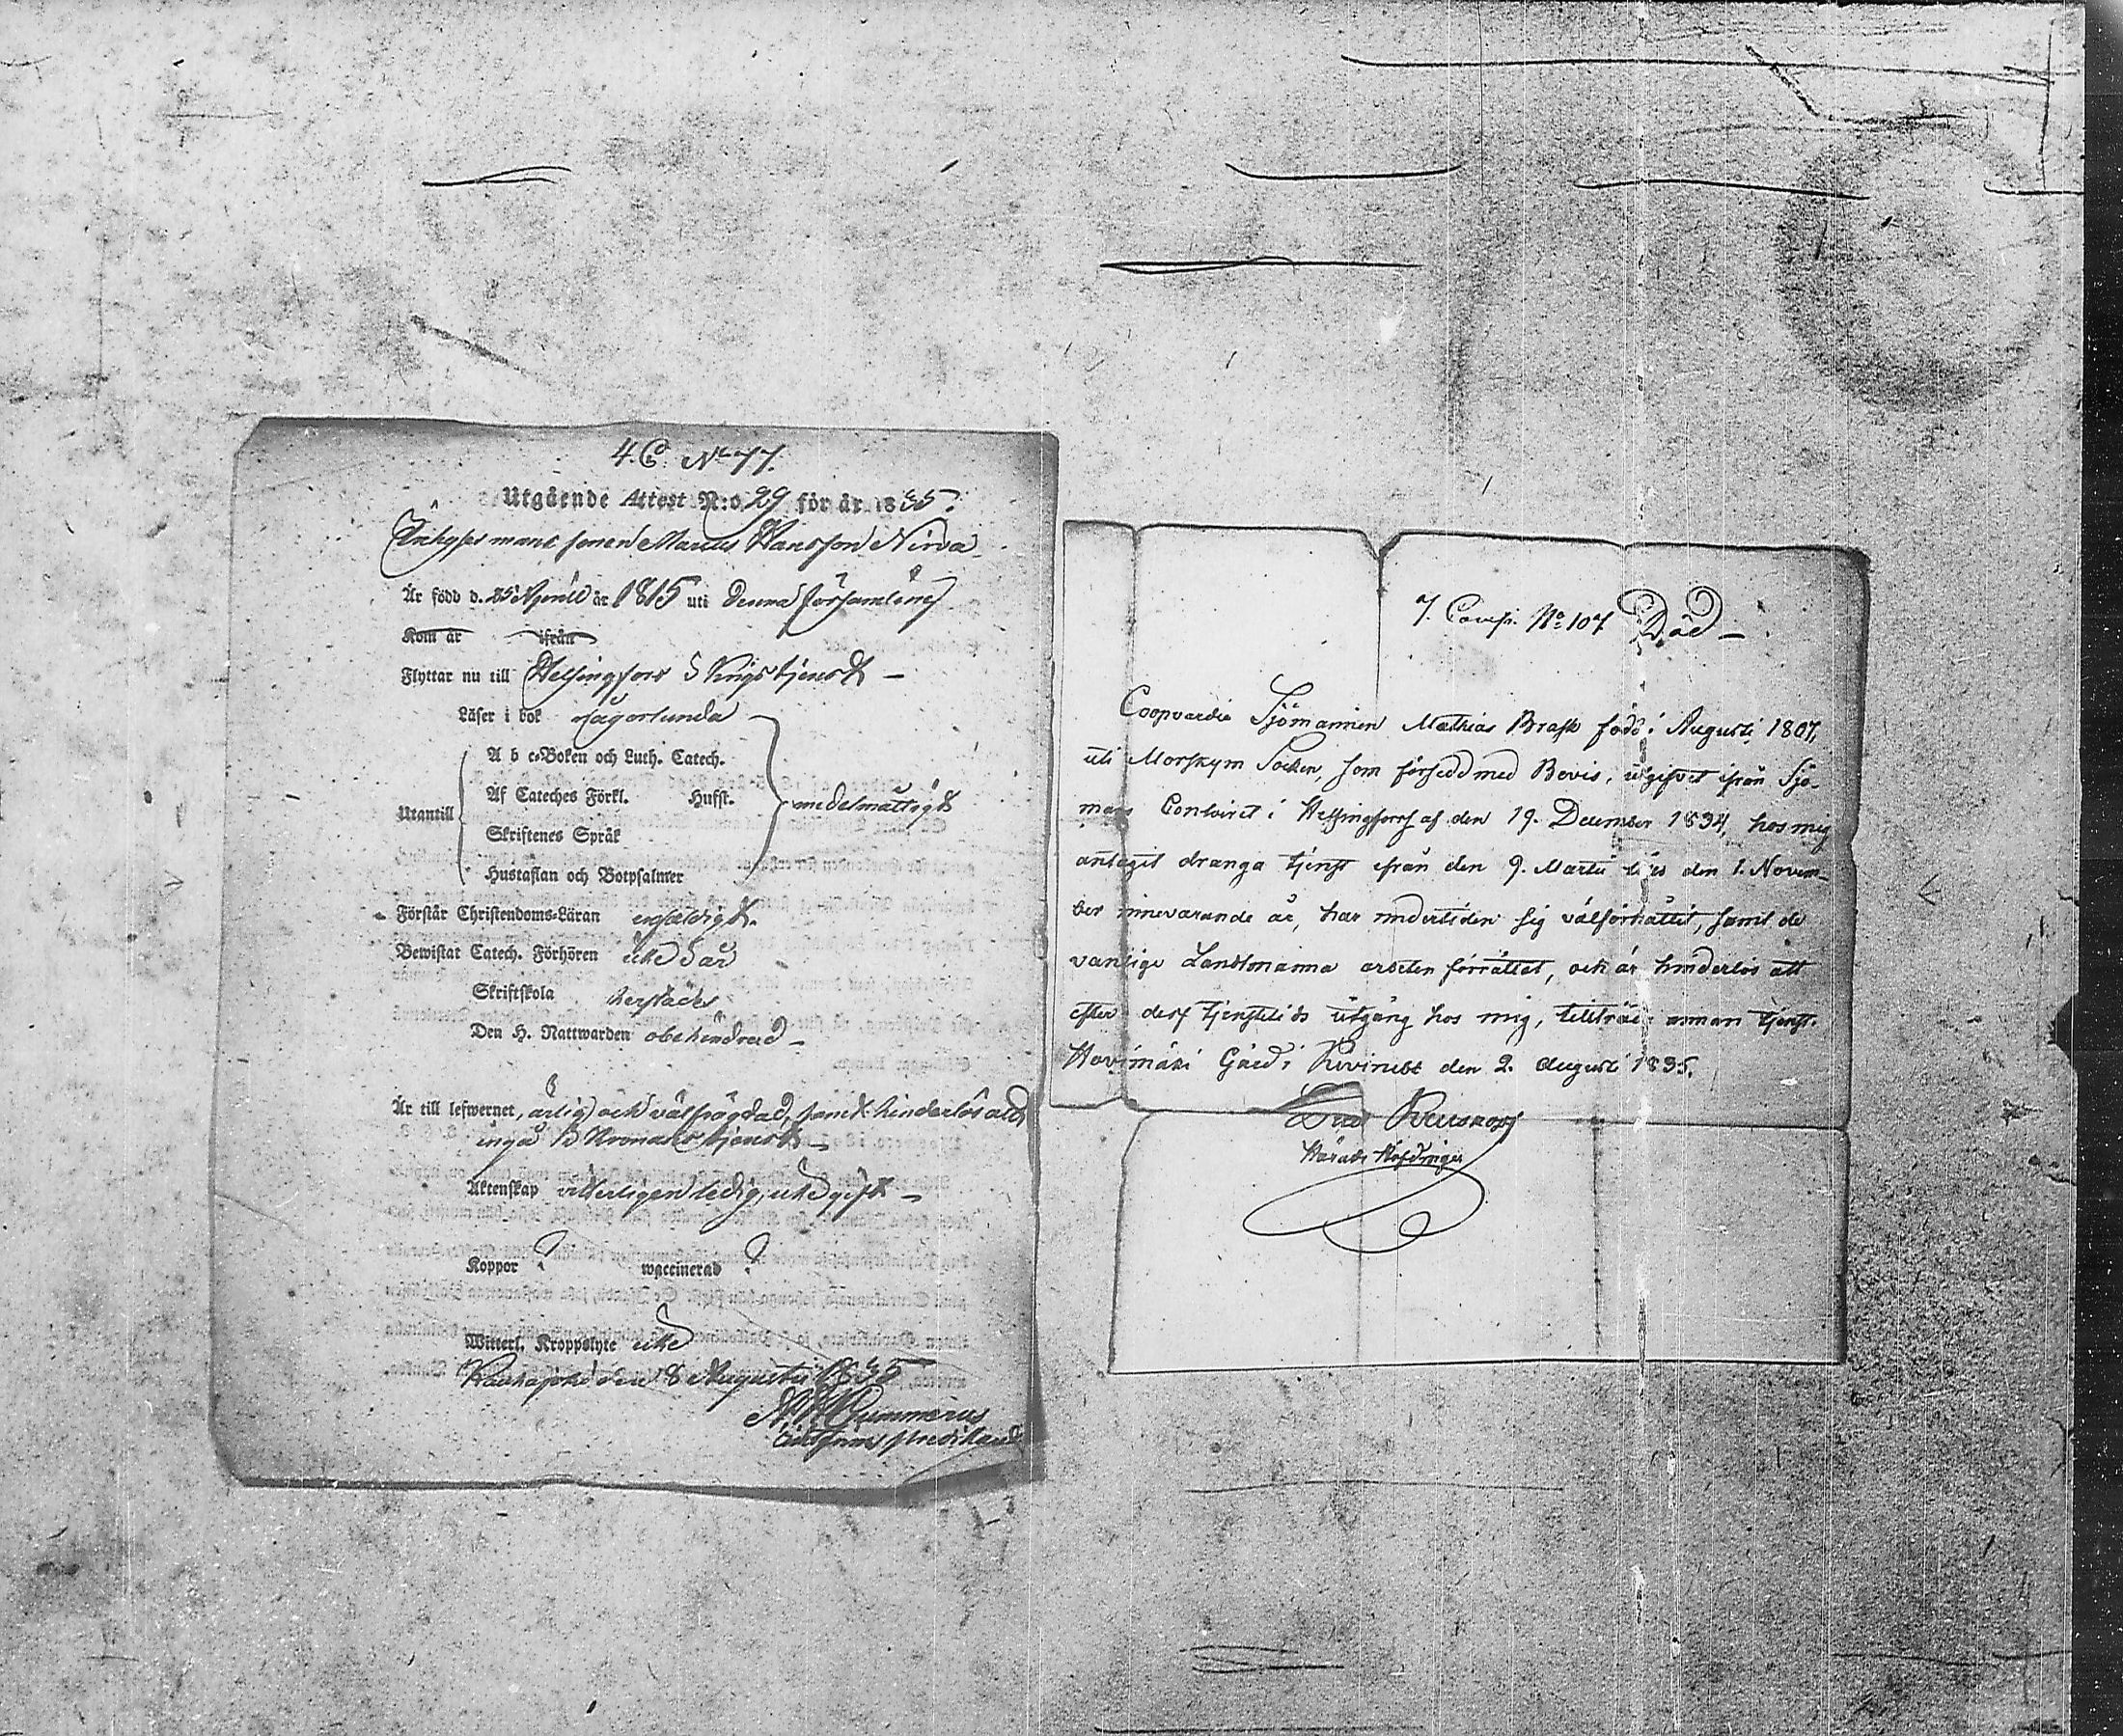 4. C. No 77.
Utgående Attest N:o 29 för år 1835.
sonen Hansson Nirva
Är född d. 25 April år 1815 uti denna församling
Kom år ifrån
Flyttar nu till Helsingfors i Krigstjenst —
Läser i bok någorlunda
A b c-Boken och Luth. Catech.
Af Cateches Förkl. Husft.
Utantill medelmåttigt
Skriftenes Språk
Hustaflan och Botpsalmer
Förstår Christendoms-Läran enfaldigt.
Bewistat Catech. Förhören icke i år
Skriftskola
Den H. Nattwarden obehindrad —
Är till lefwernet, ärlig och välfrägdad, samt hinderlös att
ingå i Kronans tjenst —
Äktenskap vitterligen ledig, icke gift —
Koppor ? waccinerad ?
Witterl. Kroppslyte icke
Kauhajoki den 8 Augusti 1835
Gummerus
7. Comp. No 107 Död —
Coopvardie Sjömannen Mathias Brask född i Augusti 1807,
uti Morskom Socken, som försedd med Bevis, utgifvet ifrån Sjö-
mans Contoiret i Helsingfors af den 19. December 1834, hos mig
antagit dränga tjenst ifrån den 9. Martii till den 1. Novem-
ber innevarande år, har undertiden sig välförhållit, samt de
vanlige Landtmanna arbeten förrättat, och är hinderlös att
efter dess tjenstetids utgång hos mig, tillträda annan tjenst.
Hovimäki Gård i den 2. Augusti 1835.
Härads Höfdinge